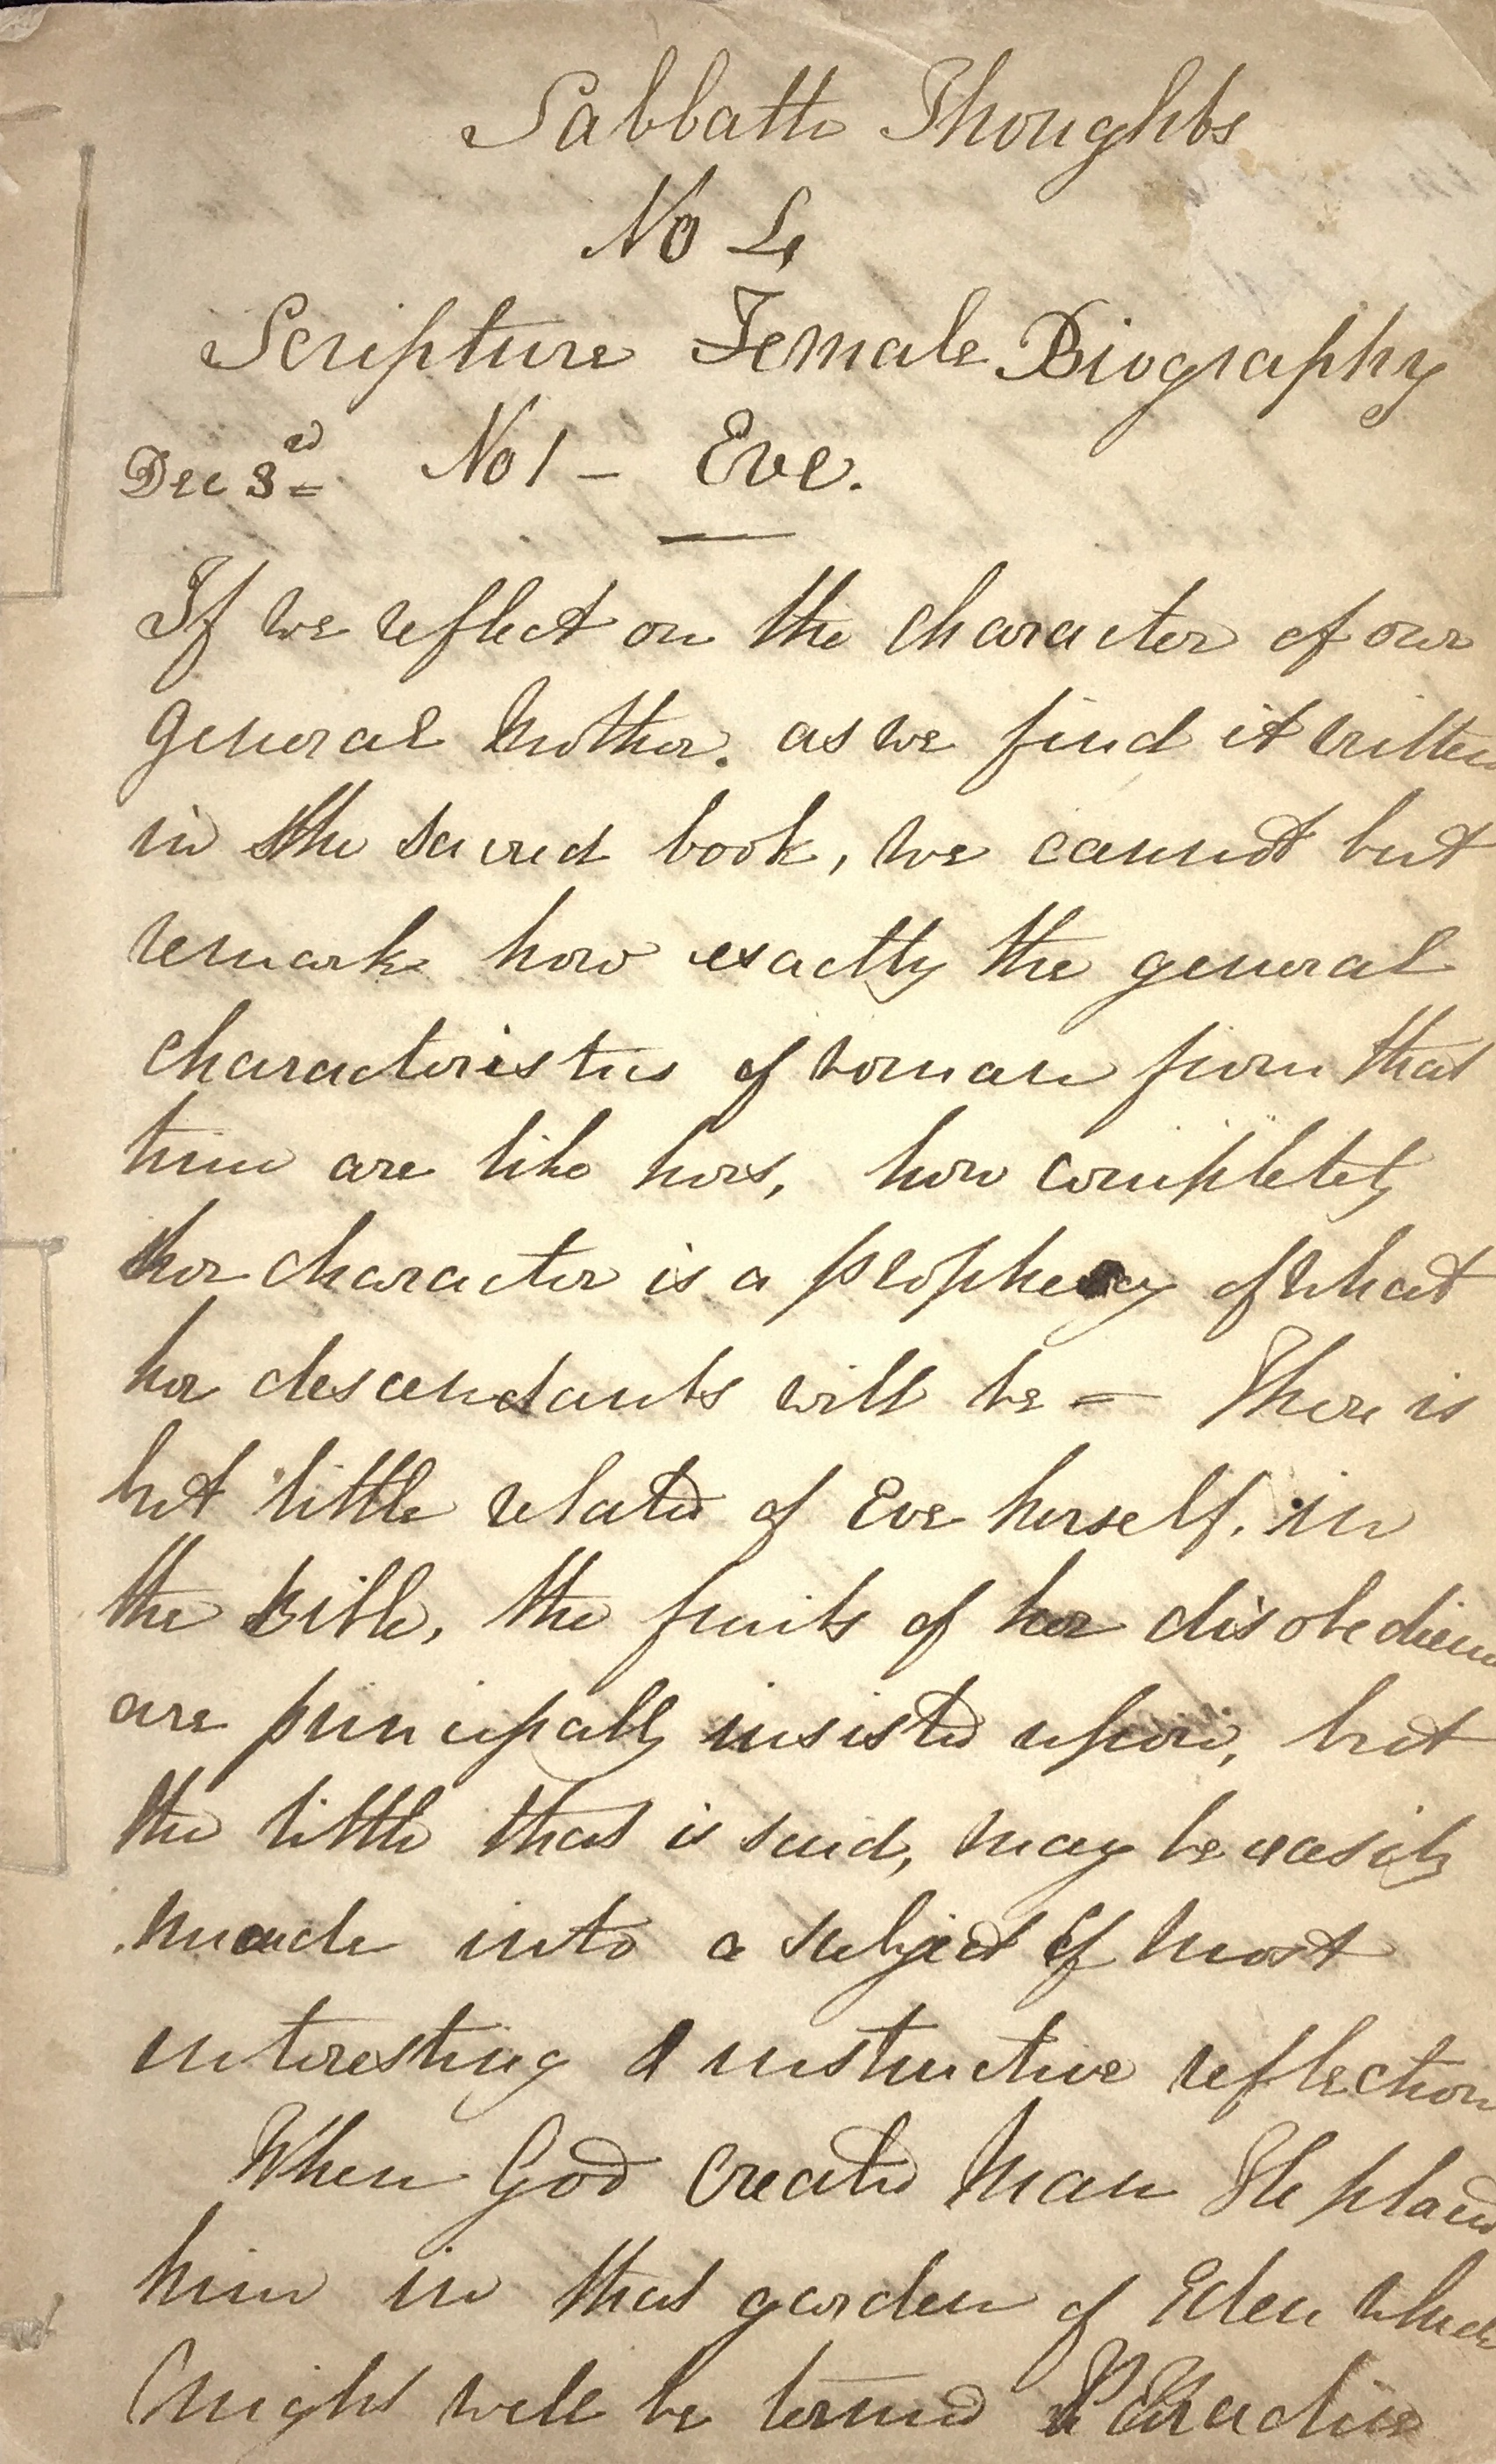 Sabbath Thoughts
No 4
Scripture Female Biography
Dec 3rd No 1 – Eve.
If we reflect on the character of our
general Mother. as we find it written
in the sacred book, we cannot but
remark how exactly the general
characteristics of woman from that
time are like hers, how completely
her character is a prophecy of what
her descendants will be = There is
but little related of Eve herself. in
the Bible, the fruits of her disobedience
are principally insisted upon, but
the little that is said, may be easily
made into a subject of most
interesting & instructive reflection
When God created Man He placed
him in that garden of Eden which
might well be termed Paradise